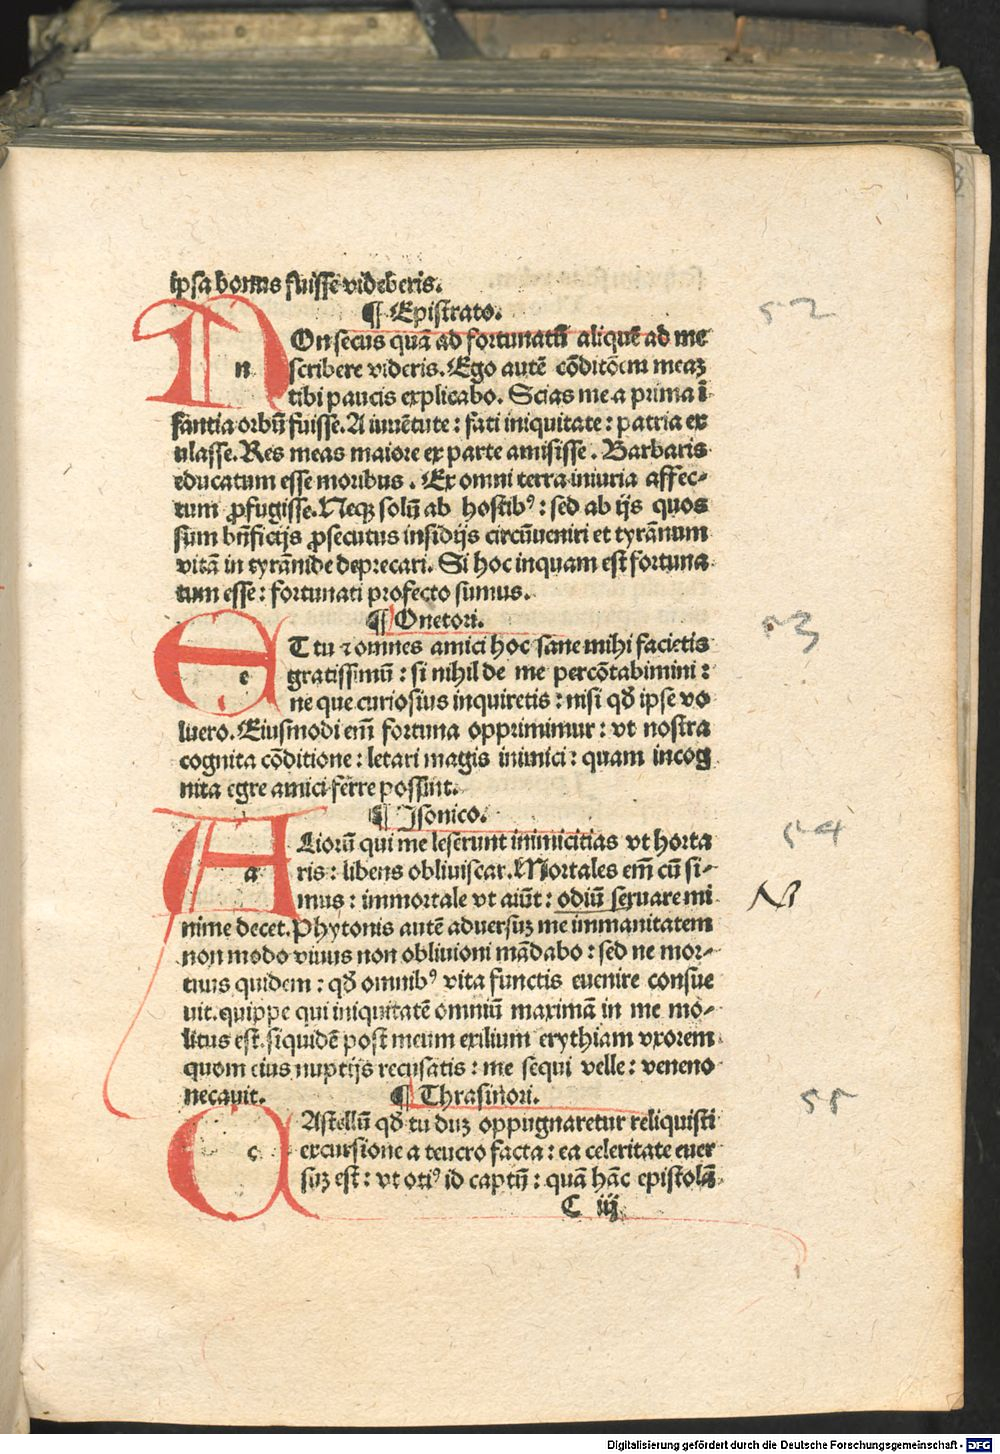 ipsa bonus fuisse videberis.
¶ Epistrato.
52
NOn secus quã ad fortunatũ aliquẽ ad me
n scribere videris. Ego autẽ cõditõem meaꝫ
tibi paucis explicabo. Scias me a prima ĩ
fantia orbũ fuisse. A iuuẽtute : fati iniquitate : patria ex
ulasse. Res meas maiore ex parte amisisse. Barbaris
educatum esse moribus. Ex omni terra iniuria affec-
tum ꝓfugisse. Neqꝫ solũ ab hostibꝰ : sed ab ijs quos
sum bñficijs ꝓsecutus insidijs circũueniri et tyrãnum
vitã in tyrãnide deprecari. Si hoc inquam est fortuna
tum esse : fortunati profecto sumus.
¶ Onetori.
53
ET tu ⁊ omnes amici hoc sane mihi facietis
e gratissimũ : si nihil de me percõtabimini :
ne que curiosius inquiretis : nisi qđ ipse vo
luero. Eiusmodi em̃ fortuna opprimimur : vt nostra
cognita cõditione : letari magis inimici : quam incog
nita egre amici ferre possint.
¶ Isonico.
54
ALiorũ qui me leserunt inimicitias vt horta
a ris : libens obliuiscar. Mortales em̃ cũ si-
mus : immortale vt aiũt : odiũ seruare mi
nime decet. Phytonis autẽ aduersuꝫ me immanitatem
non modo viuus non obliuioni mãdabo : sed ne mor-
tuus quidem : qđ omnibꝰ vita functis euenire consue
uit. quippe qui iniquitatẽ omniũ maximã in me mo-
litus est. siquidẽ post meum exilium erythiam vxorem
quom eius nuptijs recusatis : me sequi velle : veneno
necauit. ¶ Thrasinori.
55
CAstellũ qđ tu duꝫ oppugnaretur reliquisti
c excursione a teucro facta : ea celeritate euer
suꝫ est : vt otiꝰ id captũ : quã hãc epistolã
C iij
Digitalisierung gefördert durch die Deutsche Forschungsgemeinschaft - DFG